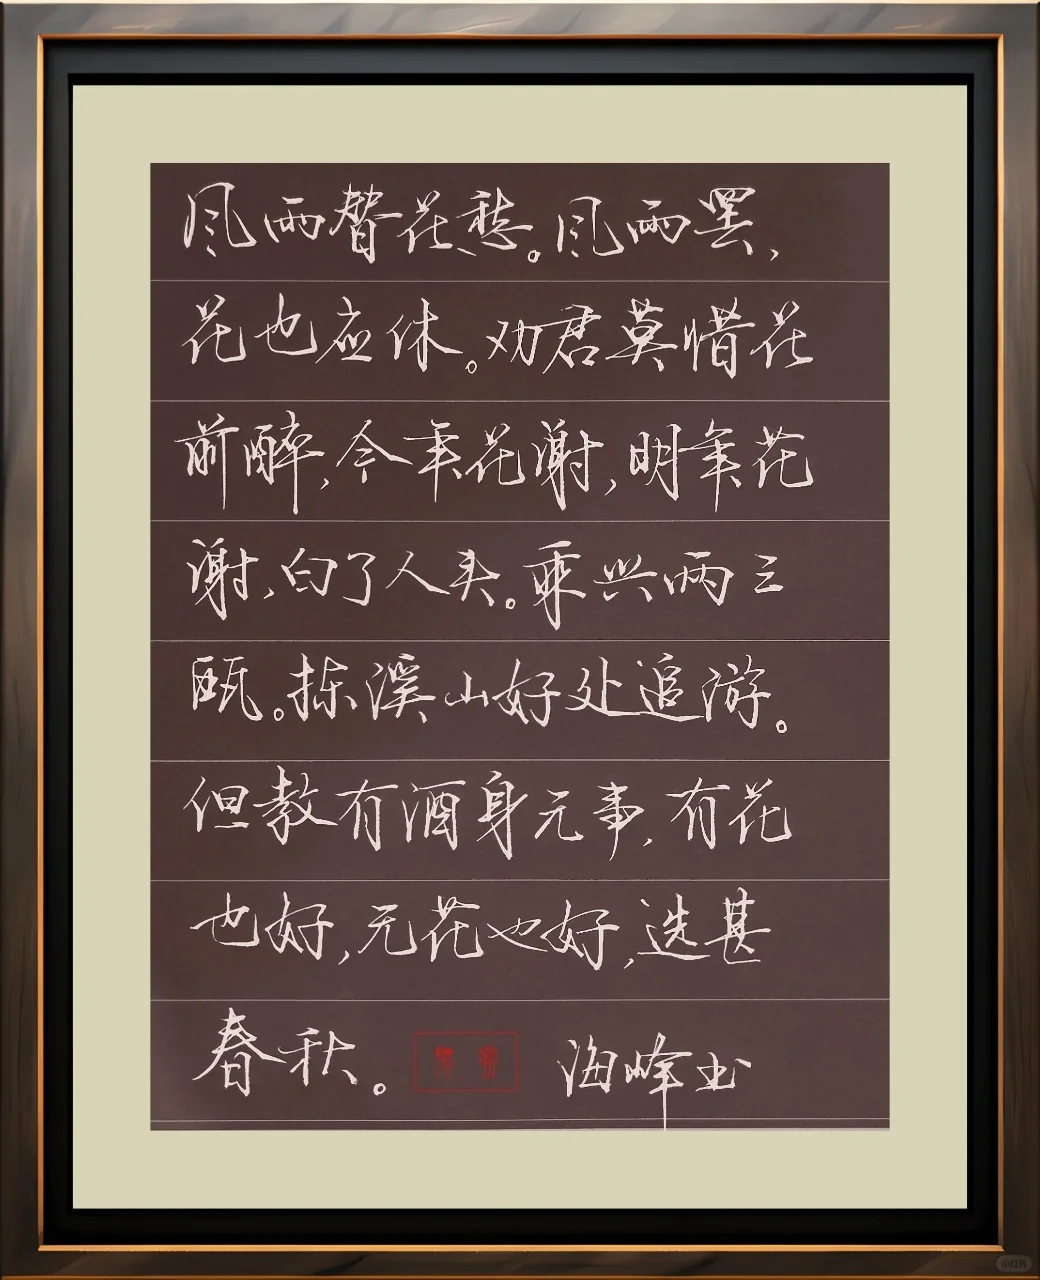 风雨替花愁。风雨罢，
花也应休。劝君莫惜花
前醉，今年花谢，明年花
谢，白了人头。乘兴两三
瓯。拣溪山好处追游。
但教有酒身无事，有花
也好，无花也好，选甚
春秋。 海峰书
小红书